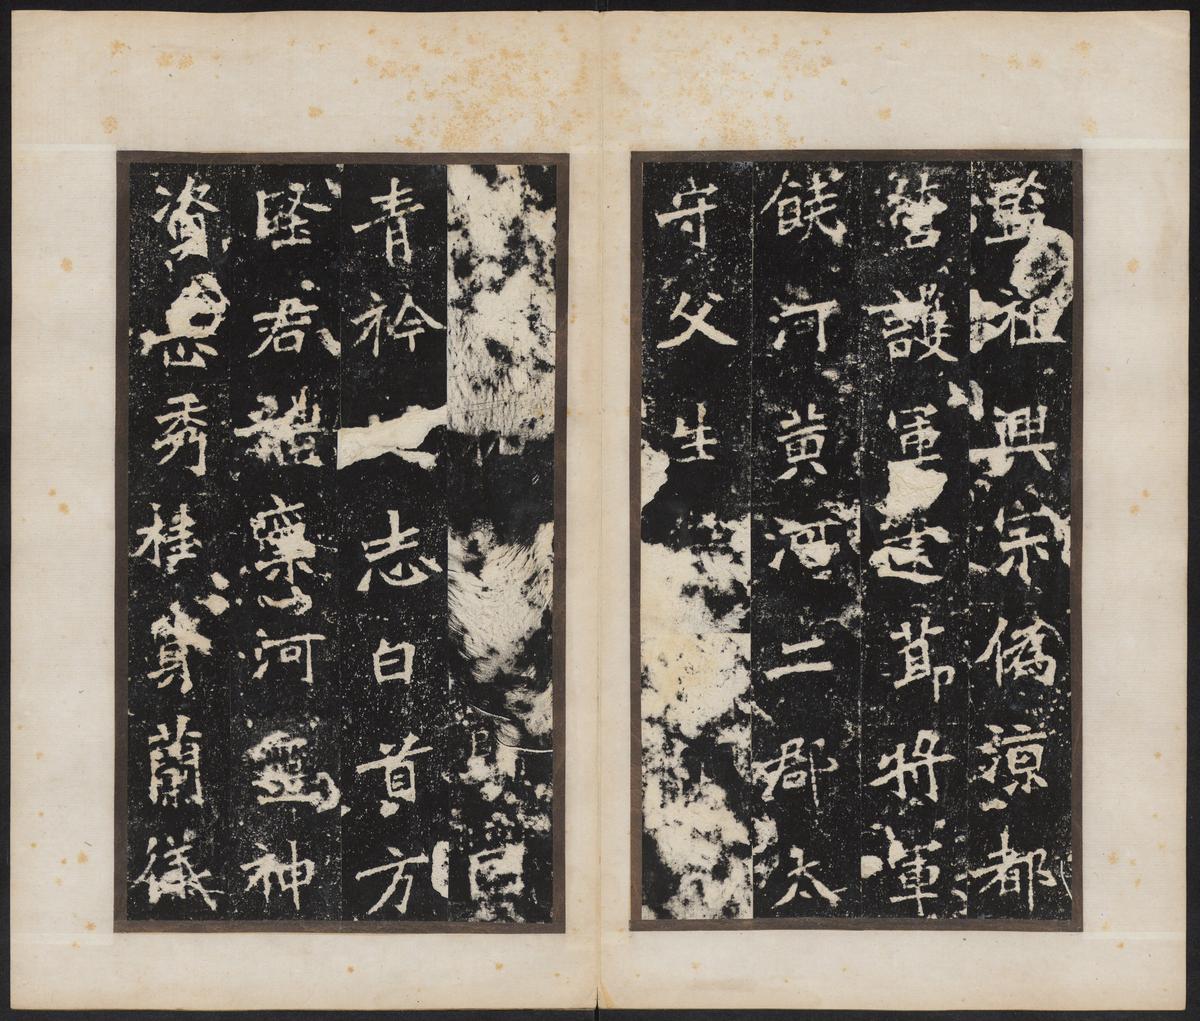 監祖興宗偽涼都
營護軍建節將軍
饒河黃河二郡太
守父生
青衿之志白首方
堅君體稟河靈神
資岳秀桂質蘭儀